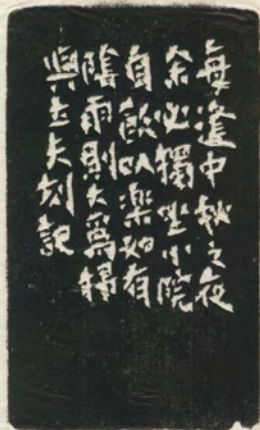 每逢中秋之夜
余必獨坐小院
自飲以樂如有
陰雨則大爲掃
興立夫刻記